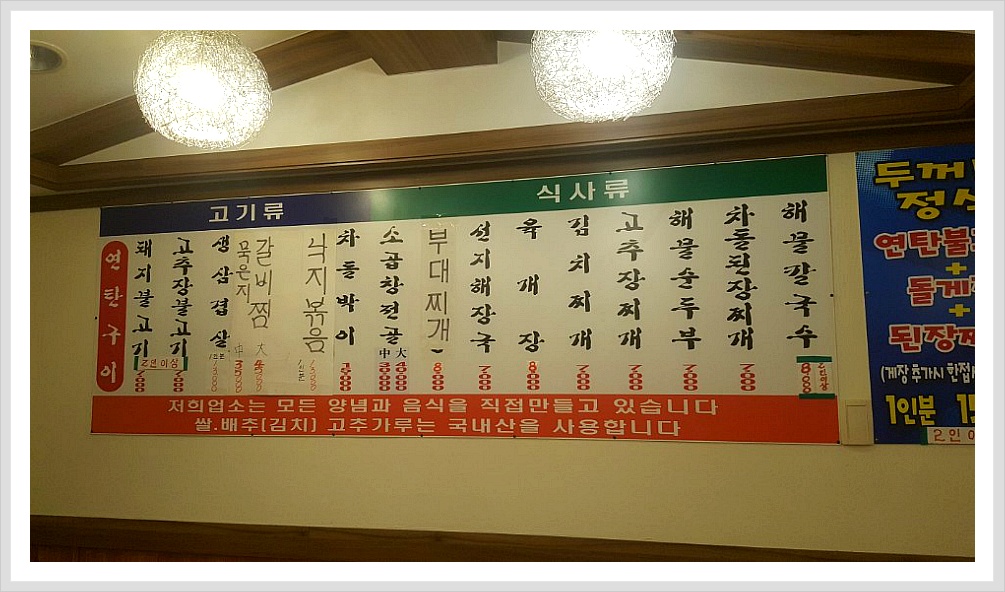 고기류
식사류
연탄구이
돼지불고기
2인이상
7000
고추장불고기
7000
생삼겹살
묵은지 갈비찜
中 大
낙지볶음
1인분
차돌박이
소곱창전골
中 大
부대찌개
8000
선지해장국
7000
육개장
8000
김치찌개
7000
고추장찌개
7000
해물순두부
7000
차돌된장찌개
7000
해물칼국수
8000
2인이상
저희업소는 모든 양념과 음식을 직접만들고 있습니다
쌀.배추(김치) 고추가루는 국내산을 사용합니다
두꺼
정식
연탄불
+
돌게
+
된장찌
(게장 추가시 한접시
1인분 15
2인 이